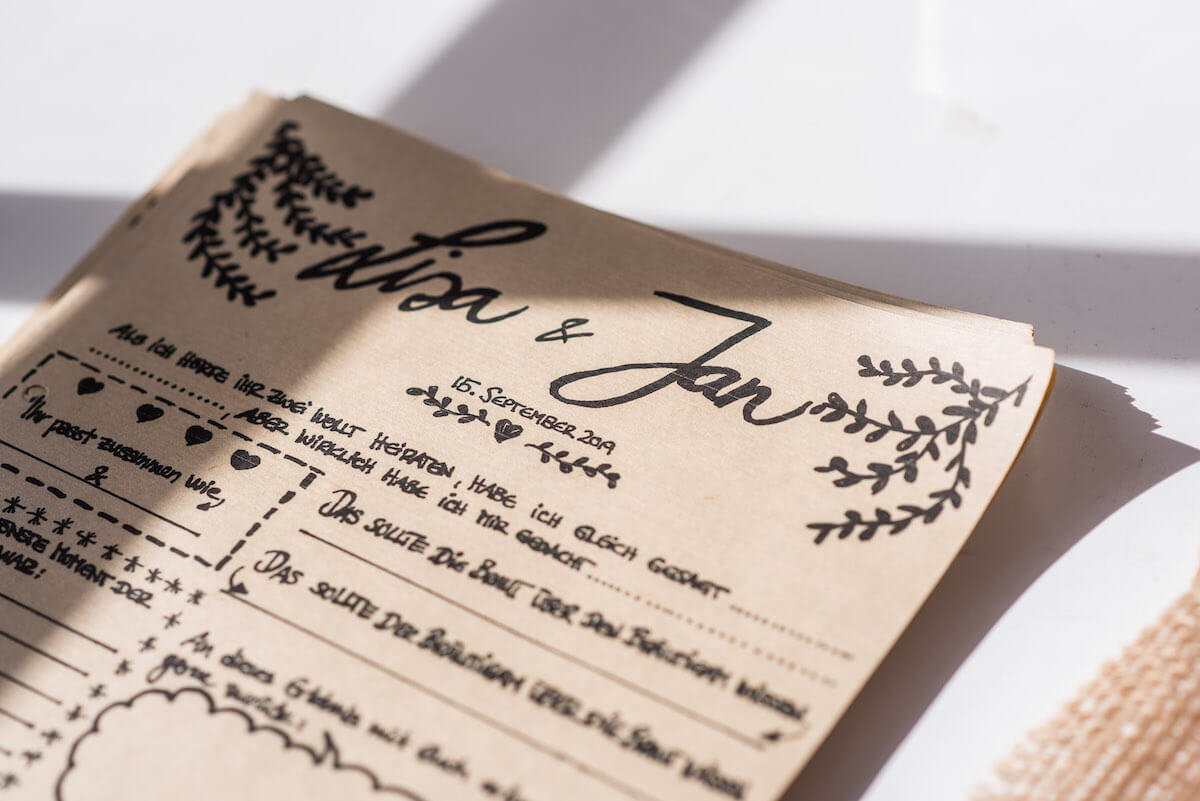 Lisa & Jan
15. September 2019
Als ich hörte ihr zwei wollt heiraten, habe ich gleich gesagt ..........
.........., aber wirklich habe ich mir gedacht ..........
Ihr passt zusammen wie,
&
Das sollte die Braut über den Bräutigam wissen
Das sollte der Bräutigam über die Braut wissen
Moment der
war:
An dieses Erlebnis mit euch
gerne zurück: